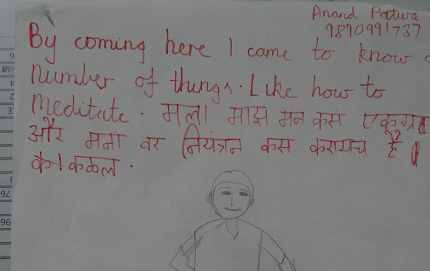 Anand Patwa
9890991737
By coming here I came to know a
number of things. Like how to
meditate. मला माझ मन कसं एकाग्र
और मना वर नियंत्रन कस करायच हे
कळल.